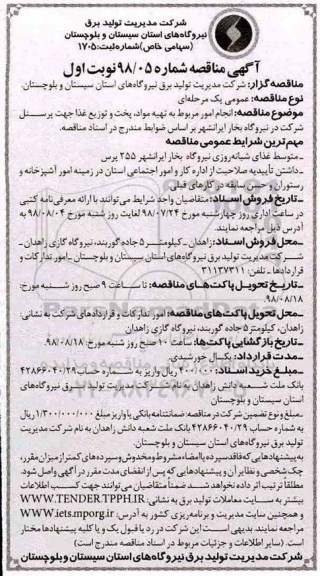 شرکت مدیریت تولید برق
نیروگاه‌های استان سیستان و بلوچستان
(سهامی خاص) شماره ثبت: ۱۷۰۵
آگهی مناقصه شماره ۹۸/۰۵ نوبت اول
مناقصه گزار: شرکت مدیریت تولید برق نیروگاه‌های استان سیستان و بلوچستان.
نوع مناقصه: عمومی یک مرحله‌ای
موضوع مناقصه: انجام امور مربوط به تهیه مواد، پخت و توزیع غذا جهت پرسنل
شرکت در نیروگاه بخار ایرانشهر بر اساس ضوابط مندرج در اسناد مناقصه.
مهم ترین شرایط عمومی مناقصه
_ متوسط غذای شبانه‌روزی نیروگاه بخار ایرانشهر ۲۵۵ پرس
_ داشتن تأییدیه صلاحیت از اداره کار و امور اجتماعی استان در زمینه امور آشپزخانه و
رستوران و حسن سابقه در کارهای قبلی.
_ تاریخ فروش اسناد: متقاضیان واجد شرایط می‌توانند با ارائه معرفی‌نامه کتبی
در ساعات اداری روز چهارشنبه مورخ ۹۸/۰۷/۲۴ لغایت روز شنبه مورخ ۹۸/۰۸/۰۴ به
آدرس ذیل مراجعه نمایند.
_ محل فروش اسناد: زاهدان _ کیلومتر ۵ جاده گوربند، نیروگاه گازی زاهدان _
شرکت مدیریت تولید برق نیروگاه‌های استان سیستان و بلوچستان _ امور تدارکات و
قراردادها _ تلفن: ۳۱۱۳۷۳۱۱
_ تاریخ تحویل پاکت‌های مناقصه: تا ساعت ۹ صبح روز شنبه مورخ:
۹۸/۰۸/۱۸
_ محل تحویل پاکت‌های مناقصه: امور تدارکات و قراردادهای شرکت به نشانی:
زاهدان، کیلومتر ۵ جاده گوربند، نیروگاه گازی زاهدان
_ تاریخ بازگشایی پاکت‌ها: ساعت ۱۰ صبح روز شنبه مورخ: ۹۸/۰۸/۱۸
_ مدت قرارداد: یکسال خورشیدی.
_ مبلغ خرید اسناد: ۴۰۰/۰۰۰ ریال واریز به شماره حساب ۴۲۸۶۶۰۴۰/۲۹
بانک ملت شعبه دانش زاهدان به نام شرکت مدیریت تولید برق نیروگاه‌های
استان سیستان و بلوچستان
_ مبلغ و نوع تضمین شرکت در مناقصه: ضمانتنامه بانکی یا واریز مبلغ ۱/۳۰۰/۰۰۰/۰۰۰ ریال
به شماره حساب ۴۲۸۶۶۰۴۰/۲۹ بانک ملت شعبه دانش زاهدان به نام شرکت مدیریت
تولید برق نیروگاه‌های استان سیستان و بلوچستان.
به پیشنهادهایی که فاقد سپرده یا امضاء مشروط و مخدوش و سپرده‌های کمتر از میزان مقرر،
چک شخصی و نظایر آن و پیشنهادهایی که پس از انقضای مدت مقرر در آگهی واصل شود،
مطلقا ترتیب اثر داده نخواهد شد ضمناً متقاضیان می‌توانند جهت کسب اطلاعات
بیشتر به سایت معاملات تولید برق به نشانی: WWW.TENDER.TPPH.IR
و همچنین سایت مدیریت و برنامه‌ریزی کشور به آدرس: WWW.iets.mporg.ir
مراجعه نمایند. بدیهی است این شرکت در رد یا قبول یک و یا کلیه پیشنهادها مختار
است. (سایر اطلاعات و جزئیات مربوط در اسناد مناقصه مندرج است)
شرکت مدیریت تولید برق نیروگاه‌های استان سیستان و بلوچستان